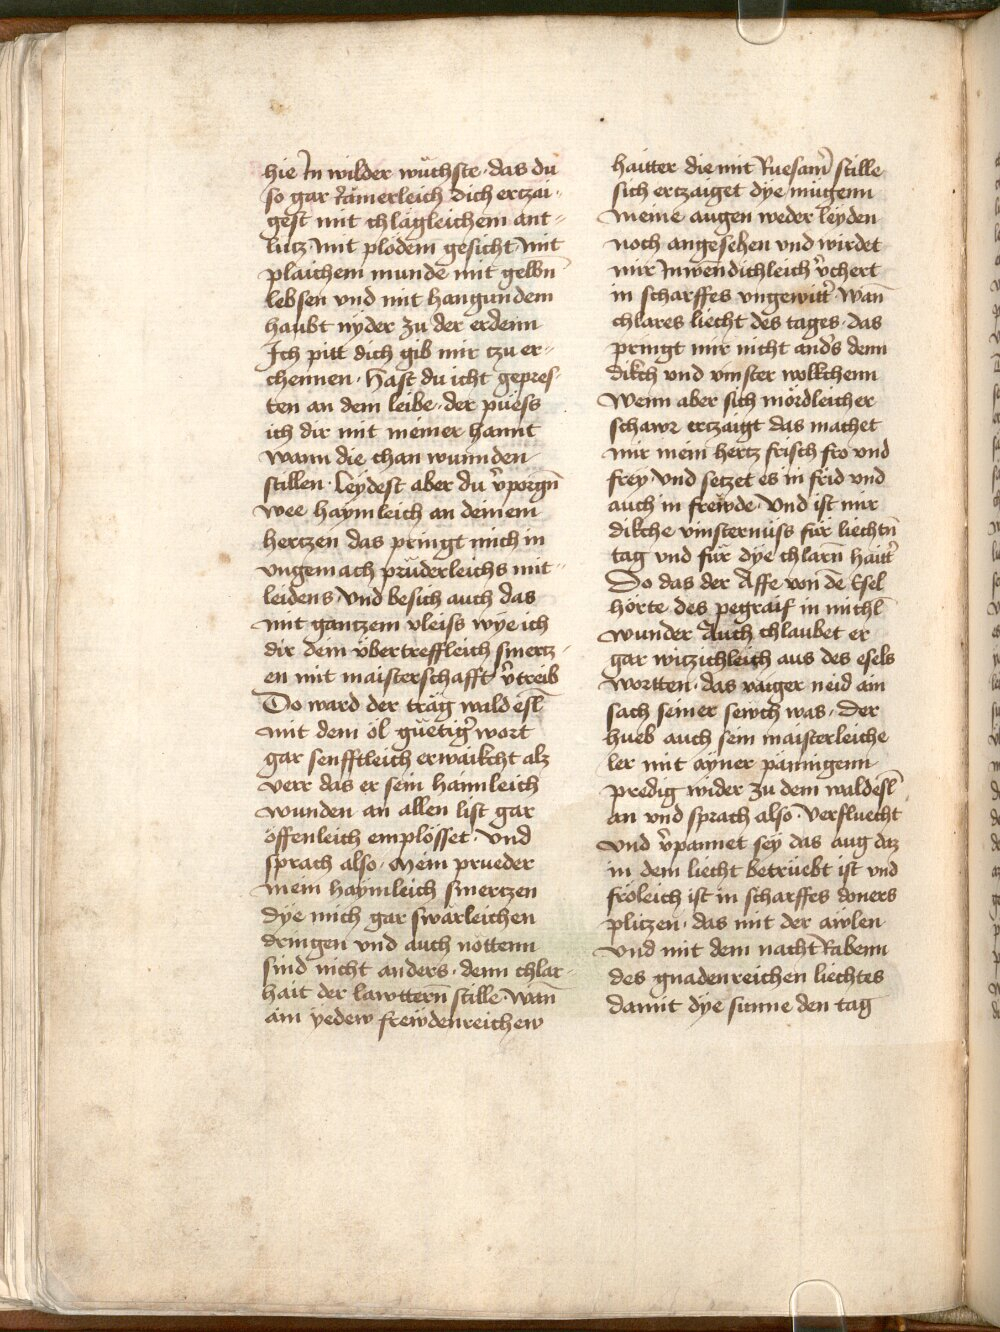 hie Jn wilder wüchste · das du
so gar Jämerleich dich erczai-
gest mit chlägleichem ant-
lucz mit plödem gesicht mit
plaichem munde mit gelbn̄
lebsen vnd mit hangundem
haubt nyder zu der erdenn
Jch pitt dich gib mir czu er-
chennen · Hast du icht gepres-
ten an dem leibe · der püess
ich dir mit meiner hannt
wann die chan wunnden
stillen · leydest aber du v̓porgn̄
wee haymleich an deinem
hertzen das pringt mich in
vngemach prüderleichs mit-
leidens · vnd besich auch das
mit gantzem vleiss wye ich
dir dein übertreffleich smertz-
en mit maisterschafft v̓treib
Do ward der träg wald esl̄
mit dem öl güetig̓ wort
gar senfftleich erwaikcht alz
verr das er sein haimleich
wunden an allen list gar
öffenleich emplösset · vnd
sprach also · Mein prueder
mein haymleich smertzen
dye mich gar swärleichen
dringen vnd auch nöttenn
sind nicht anders · denn chlar-
hait der lawttern̄ stille · wan̄
ain yedew frewdenreichew
haitter die mit Ruesam̓ stille
sich erczaiget dye mügenn
meine augen weder leyden
noch angesehen vnd wirdet
mir Jnwendichleich v̓chert
in scharffes vngewitt̓ · wan̄
chlares liecht des tages · das
pringt mir nicht and̓s denn
dikch vnd vinster wolkchenn
Wenn aber sich mördleicher
schawr erczaigt das machet
mir mein hertz frisch fro vnd
frey · vnd setzet es in frid vnd
auch in frewde · vnd ist mir
dikche vinsternüss für liechtn̄
tag vnd für dye chlarn̄ haitt̓
Do das der Affe von de Esel
hörte · des pegraif in michl̄
wunder Auch chlaubet er
gar witzichleich aus des esels
wortten · das vaiger neid ain
sach seiner sewch was · der
hueb auch sein maisterleiche
ler mit ayner pännigenn
predig wider zu dem waldesl̄
an vnd sprach also · Verfluecht
vnd v̓pannet sey das aug daz
in dem liecht betrüebt ist vnd
fröleich ist in scharffes doners
plitzen · das mit der äwlen
vnd mit dem nacht Rabenn
des gnadenreichen liechtes
damit dye sunne den tag